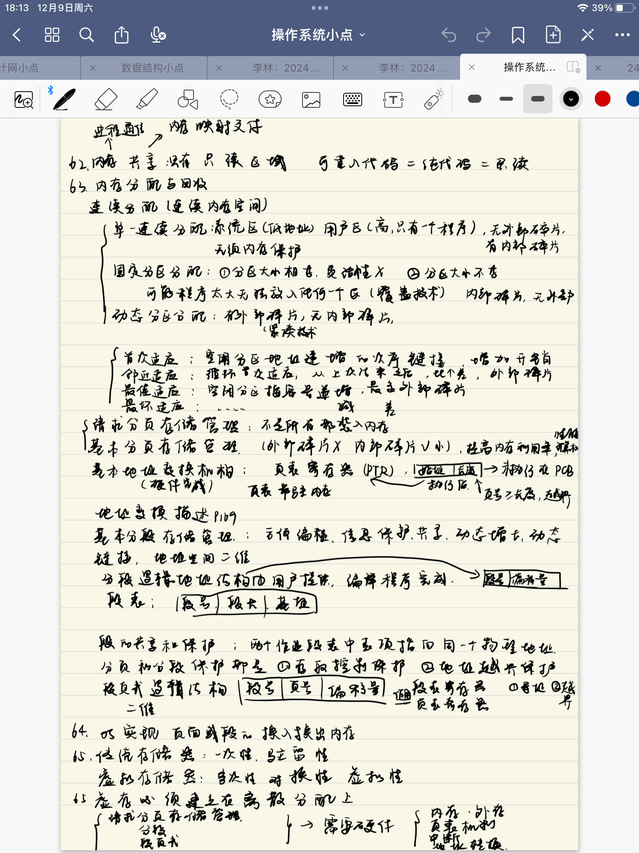 18:13 12月9日周六
39%
操作系统小点
计网小点
数据结构小点
李林：2024...
李林：2024...
操作系统...
24
进程通信 内存映射文件
62.内存共享:只有只读区域 可重入代码=纯代码=只读
63.内存分配与回收
连续分配(连续内存空间)
单一连续分配:系统区(低地址) 用户区(高,只有一个程序),无外部碎片,
无须内存保护 有内部碎片
固定分区分配:①分区大小相等,灵活性X ②分区大小不等
可能程序太大无法放入任何一个区(覆盖技术) 内部碎片,无外部
动态分区分配:有外部碎片,无内部碎片,
紧凑技术
首次适应:空闲分区地址递增的次序链接,增加开销
邻近适应:循环首次适应,从上次结束之后,比①差,外部碎片
最佳适应:空闲分区按容量递增,最多外部碎片
最坏适应:.... 减 差
请求分页存储管理:不是所有都装入内存
基本分页存储管理.(外部碎片X 内部碎片√小),提高内存利用率
基本地址变换机构: 页表寄存器(PTR),始址 长度→未执行在PCB
(硬件完成) 页表都驻内存 执行后↑ 页号≥长度,越界
地址变换描述P189
基本分段存储管理:方便编程、信息保护、共享、动态增长,动态
链接, 地址空间二维
分段逻辑地址结构由用户提供,编译程序完成. 段号 偏移量
段表: 段号 段长 基址
段的共享和保护:两个作业段表中表项指向同一个物理地址.
分页和分段保护都是①存取控制保护 ②地址越界保护
段页式逻辑结构 段号 页号 偏移量 段表寄存器 ①寻址 ②越界
二维 页表寄存器
64. OS实现页面或段的换入换出内存
65.传统存储器:一次性、驻留性
虚拟存储器:多次性 对换性 虚拟性
65 虚存必须建立在离散分配上
请求分页存储管理 内存、外存
分段 →需要硬件 页表机构
段页式 中断
地址转换